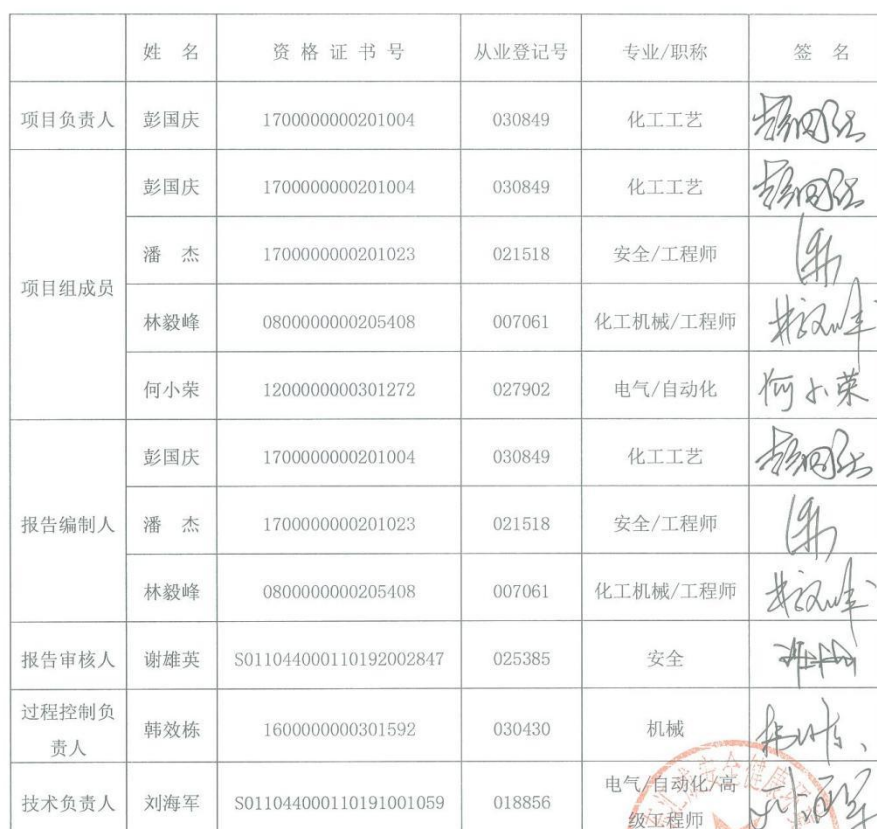 姓 名 资 格 证 书 号 从业登记号 专业/职称 签 名
项目负责人 彭国庆 1700000000201004 030849 化工工艺 彭国庆
项目组成员
彭国庆 1700000000201004 030849 化工工艺 彭国庆
潘 杰 1700000000201023 021518 安全/工程师
林毅峰 0800000000205408 007061 化工机械/工程师 林毅峰
何小荣 1200000000301272 027902 电气/自动化 何小荣
报告编制人
彭国庆 1700000000201004 030849 化工工艺 彭国庆
潘 杰 1700000000201023 021518 安全/工程师
林毅峰 0800000000205408 007061 化工机械/工程师 林毅峰
报告审核人 谢雄英 S011044000110192002847 025385 安全
过程控制负
责人
韩效栋 1600000000301592 030430 机械
技术负责人 刘海军 S011044000110191001059 018856
电气/自动化/高
级工程师